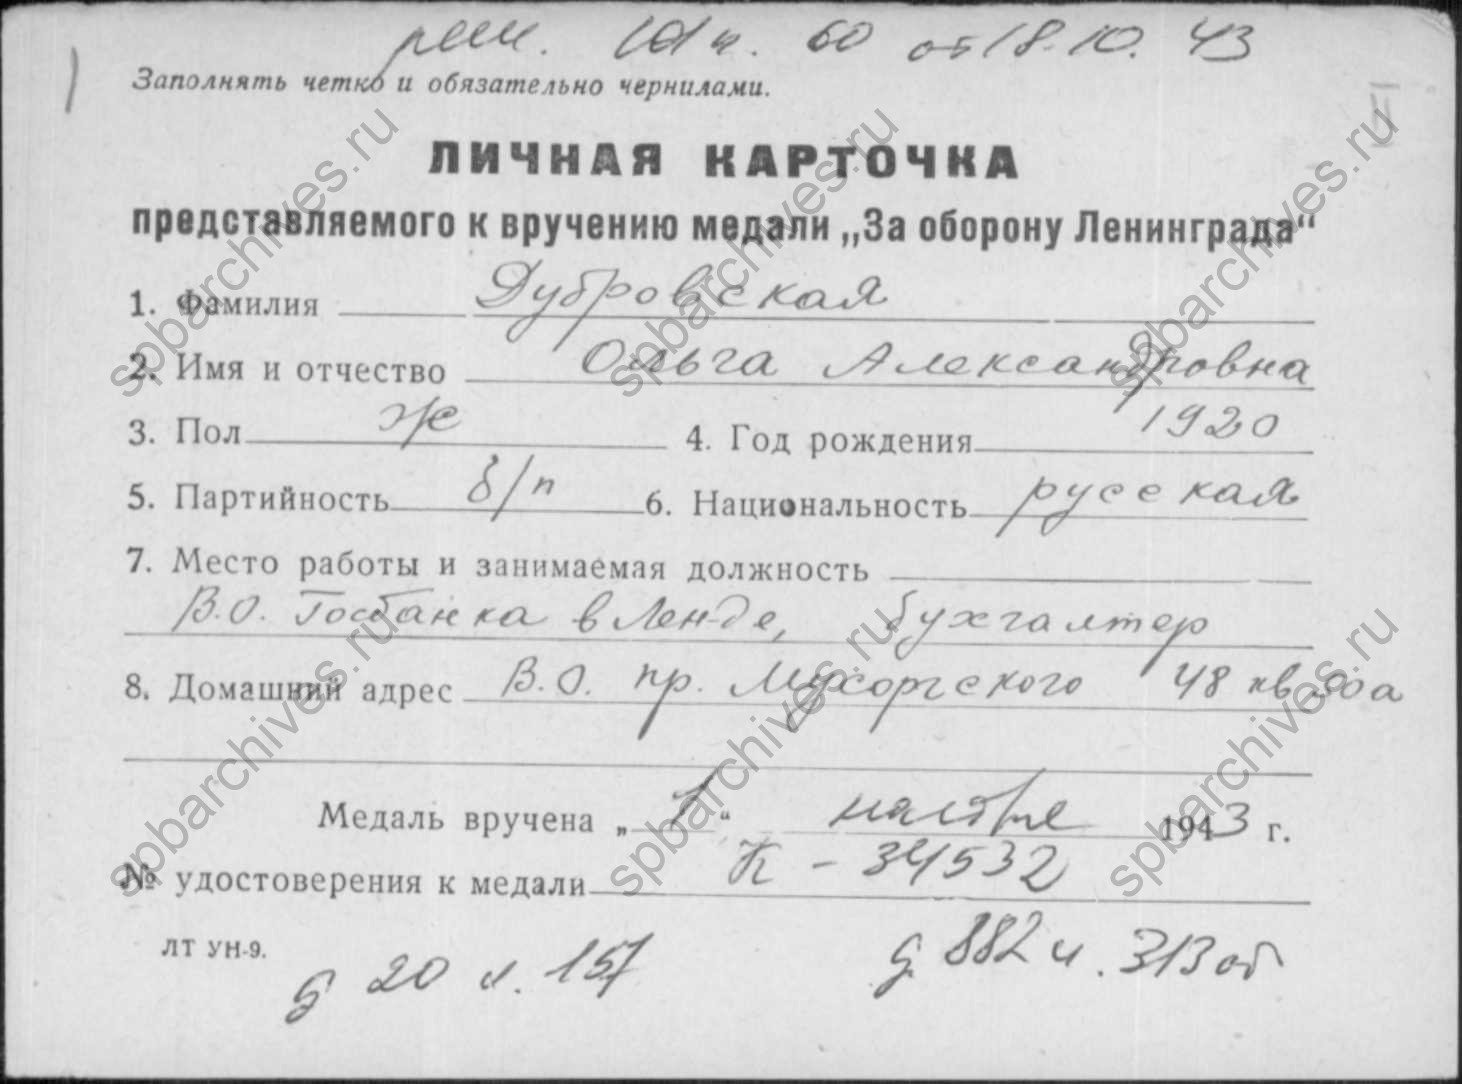 реш. п. 60 от 18.10.43
Заполнять четко и обязательно чернилами.
ЛИЧНАЯ КАРТОЧКА
представляемого к вручению медали „За оборону Ленинграда“
1. Фамилия Дубровская
2. Имя и отчество Ольга Александровна
3. Пол ж 4. Год рождения 1920
5. Партийность б/п 6. Национальность русская
7. Место работы и занимаемая должность
В.О. Госбанка в Лен-де, бухгалтер
8. Домашний адрес В.О. пр. Мусоргского 48 кв
Медаль вручена „ 1 “ ноября 1943 г.
№ удостоверения к медали К - 34532
ЛТ УН-9.
д 20 л. 157 д 882 л. 313 об
spbarchives.ru spbarchives.ru spbarchives.ru
spbarchives.ru spbarchives.ru spbarchives.ru